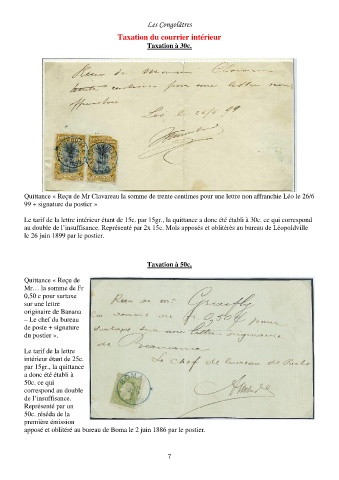 Les Congolâtres
Taxation du courrier intérieur
Taxation à 30c.
Reçu de Monsieur Clavareau
trente centimes pour une lettre non
affranchie
Léo le 26/6 99
Quittance « Reçu de Mr Clavareau la somme de trente centimes pour une lettre non affranchie Léo le 26/6
99 + signature du postier »
Le tarif de la lettre intérieur étant de 15c. par 15gr., la quittance a donc été établi à 30c. ce qui correspond
au double de l'insuffisance. Représenté par 2x 15c. Mols apposés et oblitérés au bureau de Léopoldville
le 26 juin 1899 par le postier.
Taxation à 50c.
Quittance « Reçu de
Mr… la somme de Fr
0,50 c pour surtaxe
sur une lettre
originaire de Banana
– Le chef du bureau
de poste + signature
du postier ».
Le tarif de la lettre
intérieur étant de 25c.
par 15gr., la quittance
a donc été établi à
50c. ce qui
correspond au double
de l'insuffisance.
Représenté par un
50c. réséda de la
première émission
apposé et oblitéré au bureau de Boma le 2 juin 1886 par le postier.
Reçu de Mr
la somme de fr 0,50 c pour
surtaxe sur une lettre originaire
de Banana
Le chef du bureau de Poste
BOMA
7